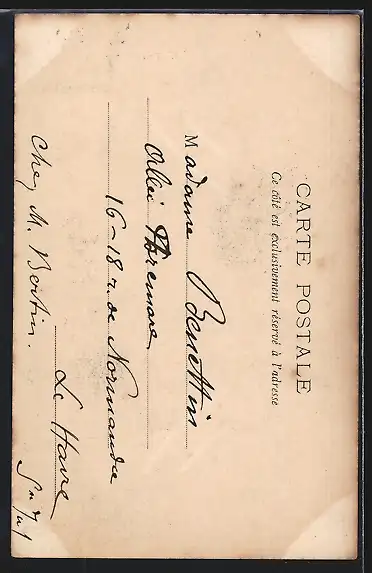 CARTE POSTALE
Ce côté est exclusivement réservé à l'adresse
Madame Benettin
16-18 r. de Normandie
Le Havre
Chez M. Bertin.